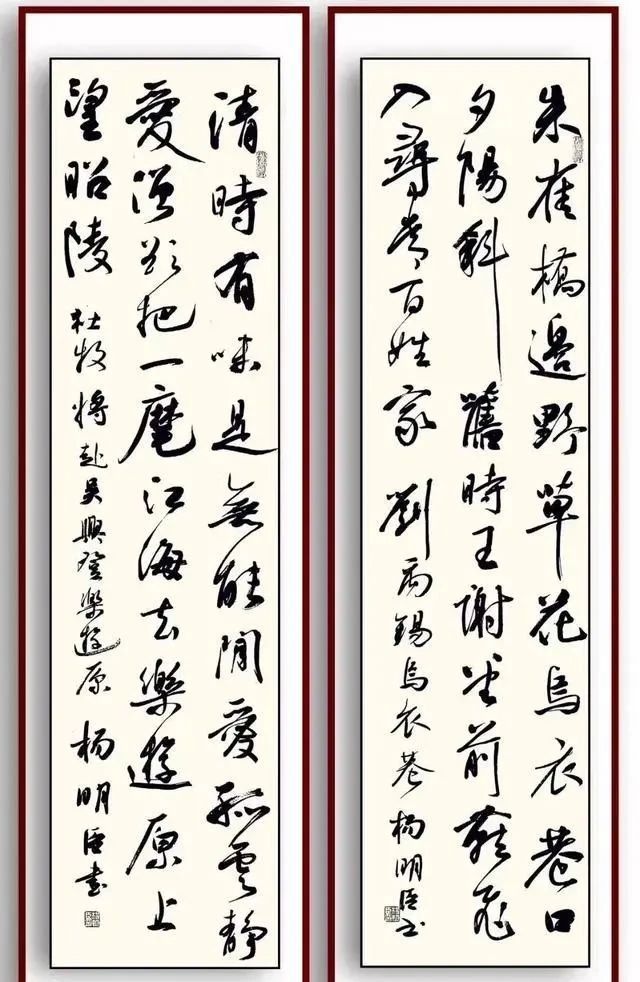 朱雀橋邊野草花烏衣巷口
夕陽斜舊時王謝堂前燕飛
入尋常百姓家 劉禹錫烏衣巷 杨明臣书
清時有味是無能閒愛孤雲靜
愛僧欲把一麾江海去樂遊原上
望昭陵 杜牧將赴吳興登樂遊原 杨明臣書